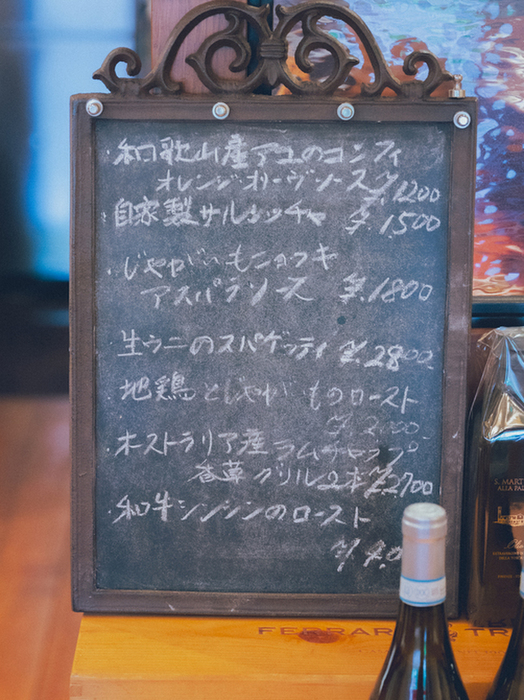 ・和歌山産アユのコンフィ
オレンジ・オリーヴソース ¥.1200
・自家製サルシッチャ ¥.1,500
・じゃがいものニョッキ
アスパラソース ¥.1800
・生ウニのスパゲッティ ¥.2800.
・地鶏とじゃがいものロースト
¥.2000.
・オーストラリア産ラムチョップ
香草グリル2本 ¥.2700
・和牛シンシンのロースト
¥.4.0
S. MART
ALLA PA
FERRAR
TR